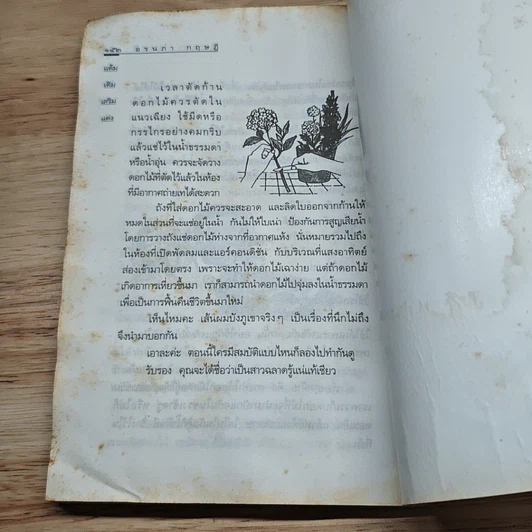 ๖๕๒ อรนภา กฤษฎี
แต้ม
เติม
เสริม
แต่ง
เวลาตัดก้าน
ดอกไม้ควรตัดใน
แนวเฉียง ใช้มีดหรือ
กรรไกรอย่างคมกริบ
แล้วแช่ไว้ในน้ำธรรมดา
หรือน้ำอุ่น ควรจะจัดวาง
ดอกไม้ที่ตัดไว้แล้วในห้อง
ที่มีอากาศถ่ายเทได้สะดวก
ถังที่ใส่ดอกไม้ควรจะสะอาด และลิดใบออกจากก้านให้
หมดในส่วนที่จะแช่อยู่ในน้ำ กันไม่ให้ใบเน่า ป้องกันการสูญเสียน้ำ
โดยการวางถังแช่ดอกไม้ห่างจากที่อากาศแห้ง นั่นหมายรวมไปถึง
ในห้องที่เปิดพัดลมและแอร์คอนดิชัน กับบริเวณที่แสงอาทิตย์
ส่องเข้ามาโดยตรง เพราะจะทำให้ดอกไม้เฉาง่าย แต่ถ้าดอกไม้
เกิดอาการเหี่ยวขึ้นมา เราก็สามารถนำดอกไม้ไปจุ่มลงในน้ำธรรมดา
เพื่อเป็นการฟื้นคืนชีวิตขึ้นมาใหม่
เห็นไหมคะ เส้นผมบังภูเขาจริงๆ เป็นเรื่องที่นึกไม่ถึง
จึงนำมาบอกกัน
เอาละค่ะ ตอนนี้ใครมีสมบัติแบบไหนก็ลองไปทำกันดู
รับรอง คุณจะได้ชื่อว่าเป็นสาวฉลาดรู้แน่แท้เชียว